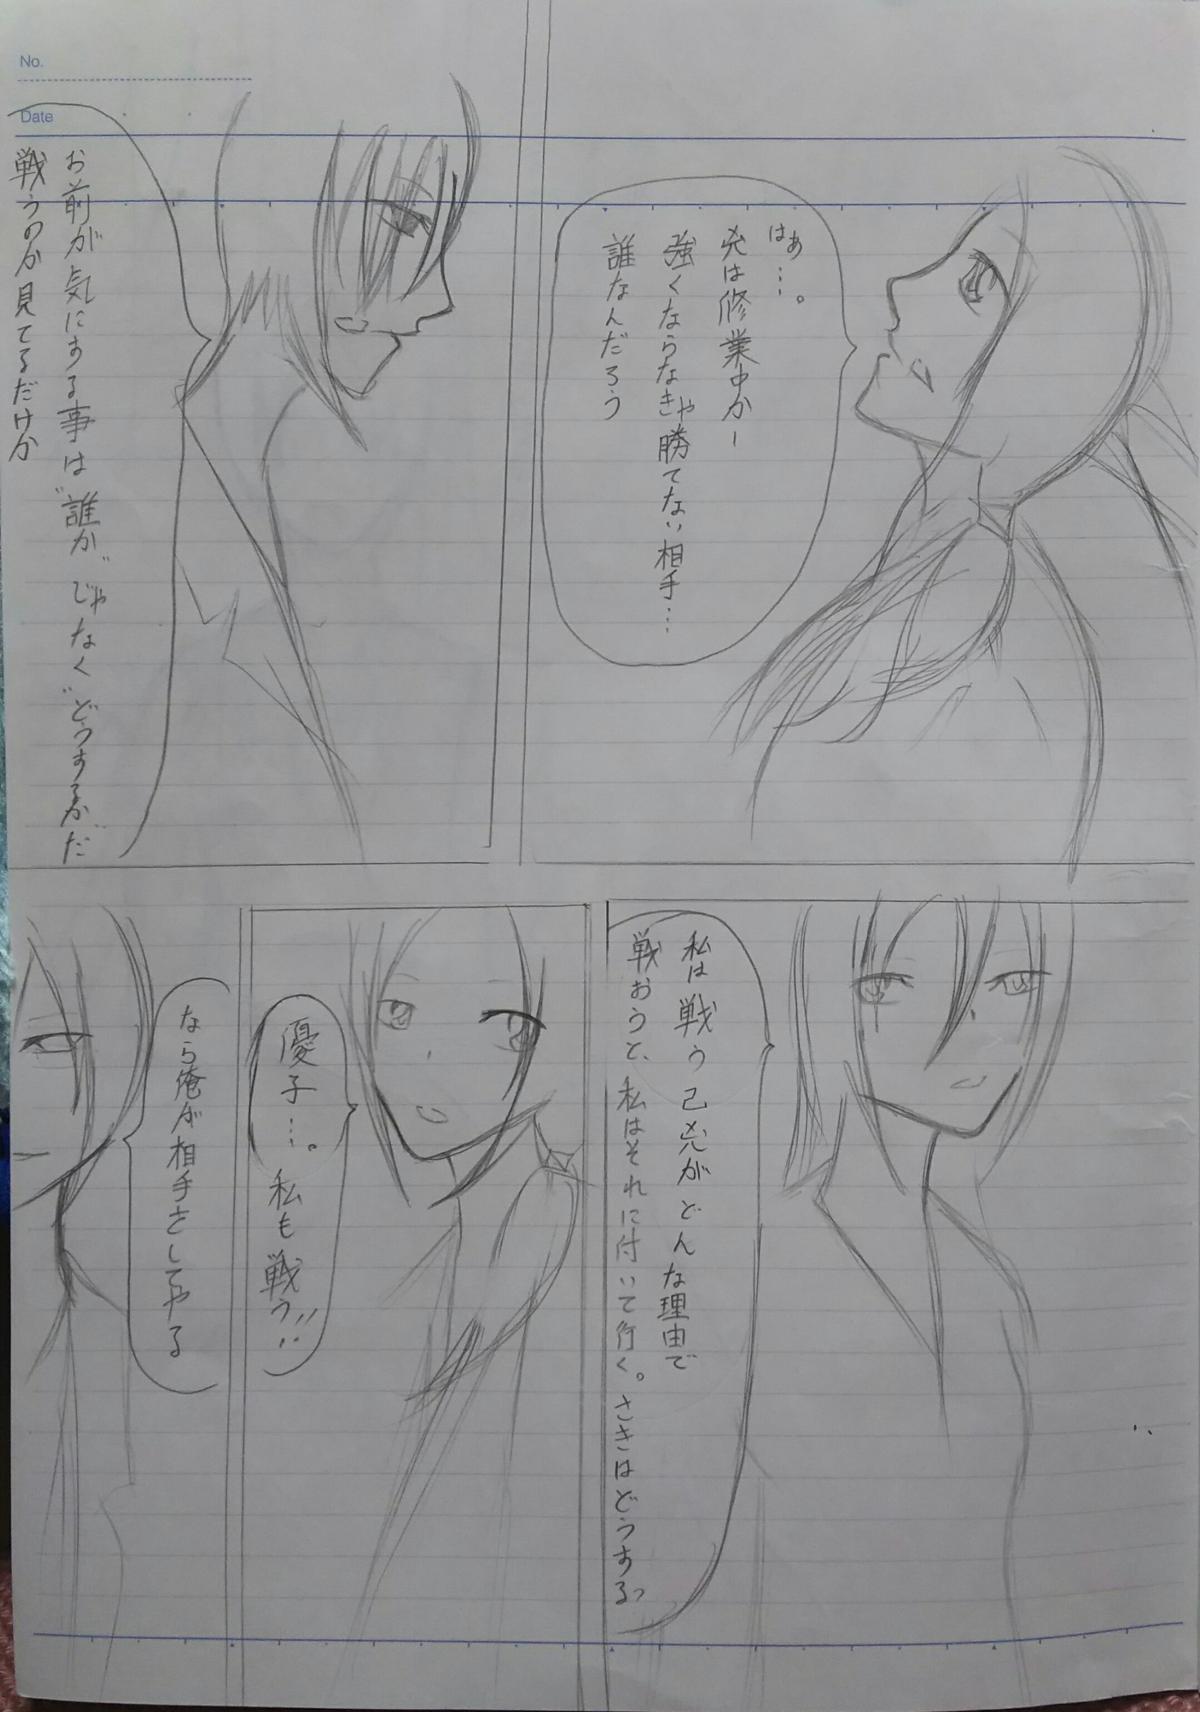 No.
Date
はぁ…。
兇は修業中かー
強くならなきゃ勝てない相手…
誰なんだろう
お前が気にする事は"誰か"じゃなく"どうするか"だ
戦うのか見てるだけか
私は戦う 己兇がどんな理由で
戦おうと、私はそれに付いて行く。さきはどうする?
優子…。
私も戦う!!
なら俺が相手をしてやる